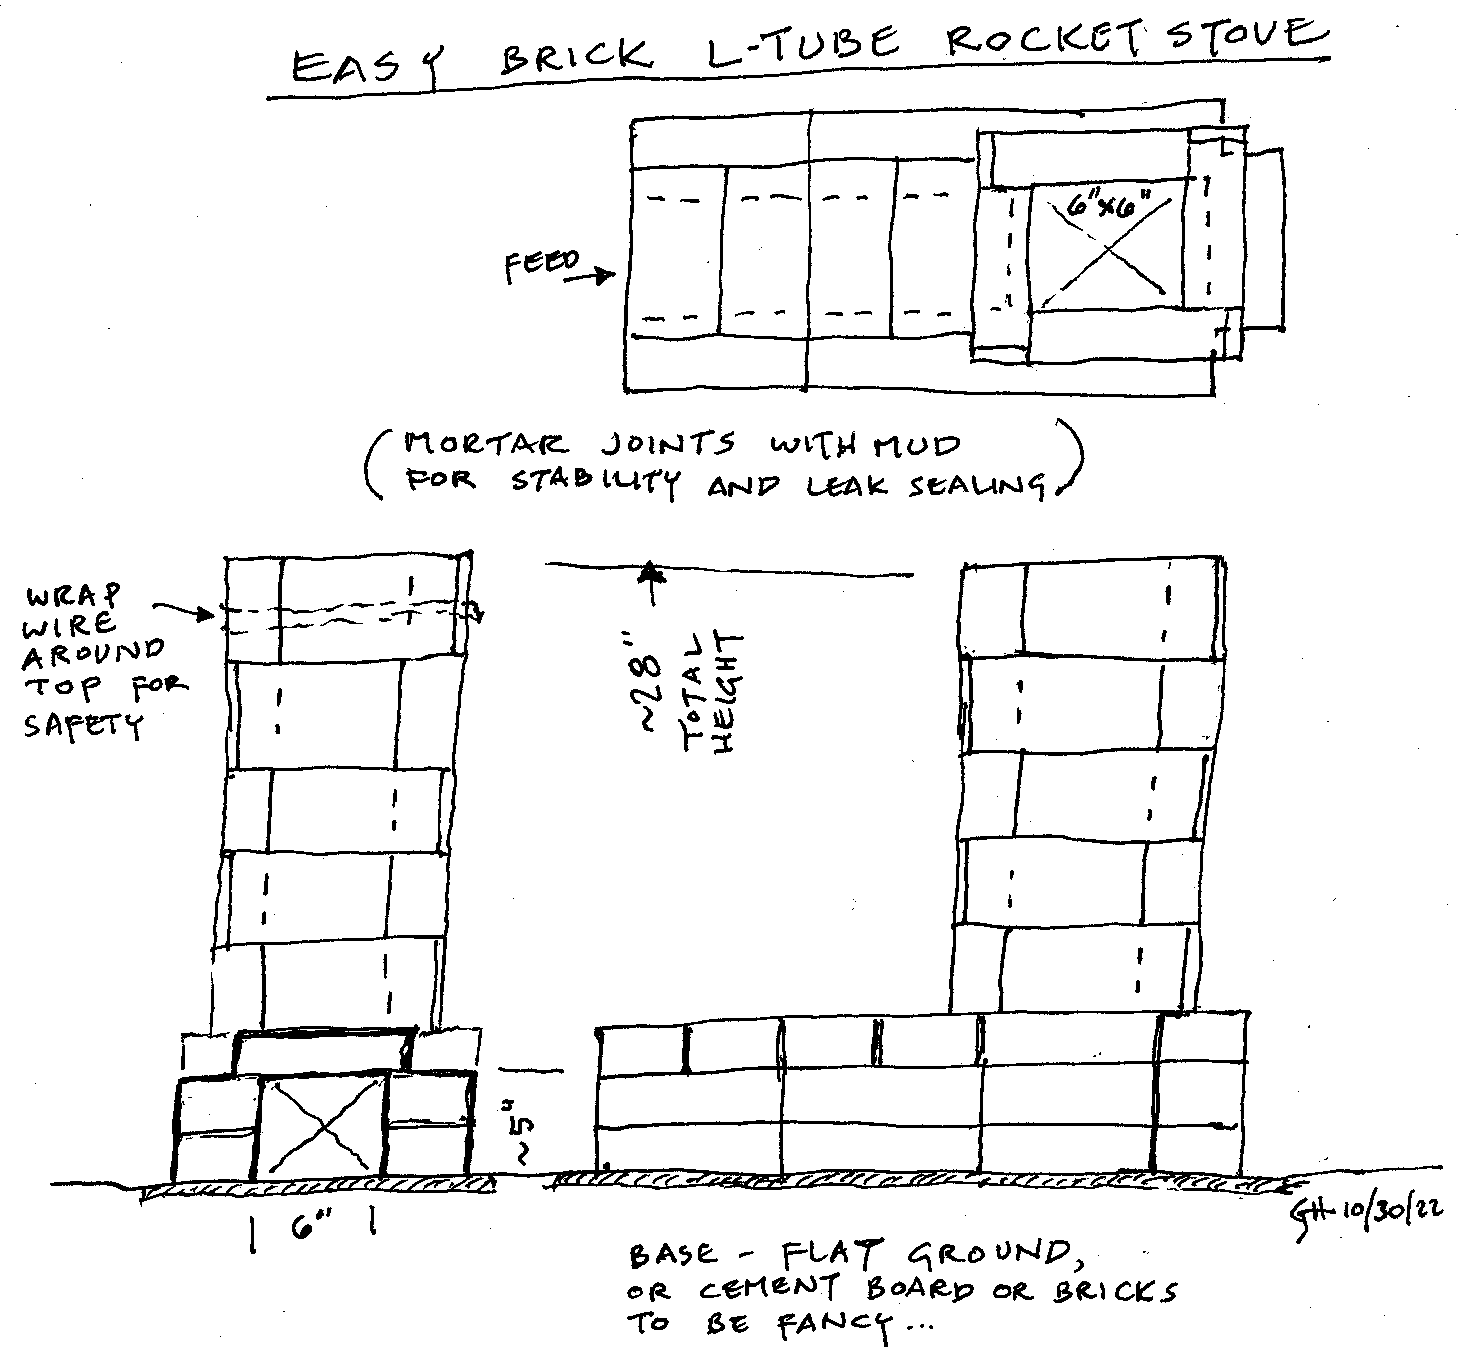 EASY BRICK L-TUBE ROCKET STOVE
6"x6"
FEED
(MORTAR JOINTS WITH MUD
FOR STABILITY AND LEAK SEALING)
WRAP
WIRE
AROUND
TOP FOR
SAFETY
~28"
TOTAL
HEIGHT
~5"
6"
GH 10/30/22
BASE - FLAT GROUND,
OR CEMENT BOARD OR BRICKS
TO BE FANCY...